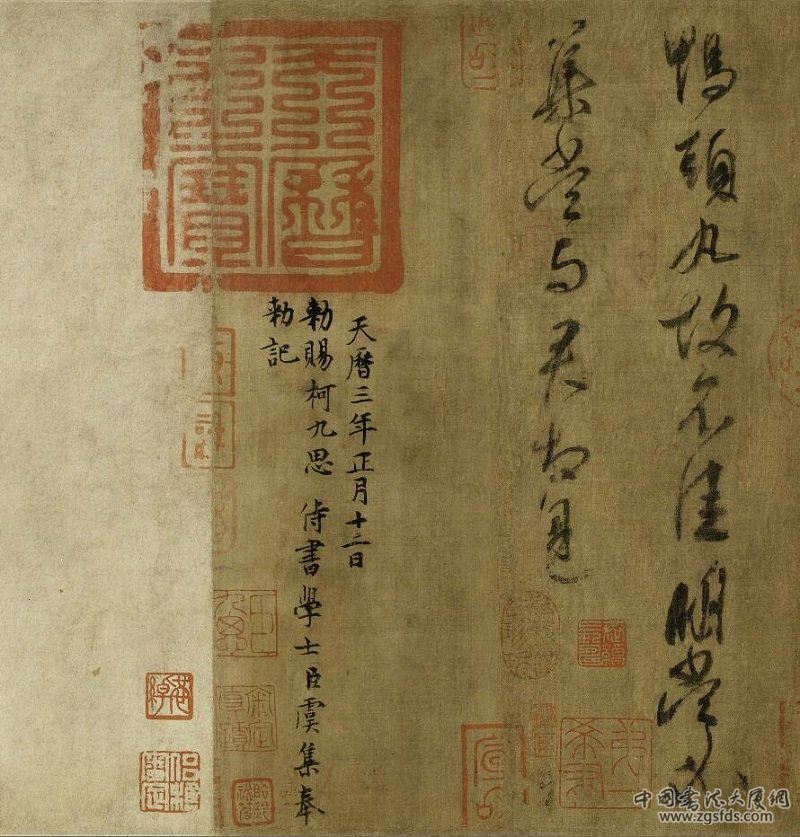 鴨頭丸故不佳明當必
集當与君相見
天曆之寶
天曆三年正月十二日
勑賜柯九思 侍書學士臣虞集奉
勑記
中國書法大展網
www.zgsfds.com